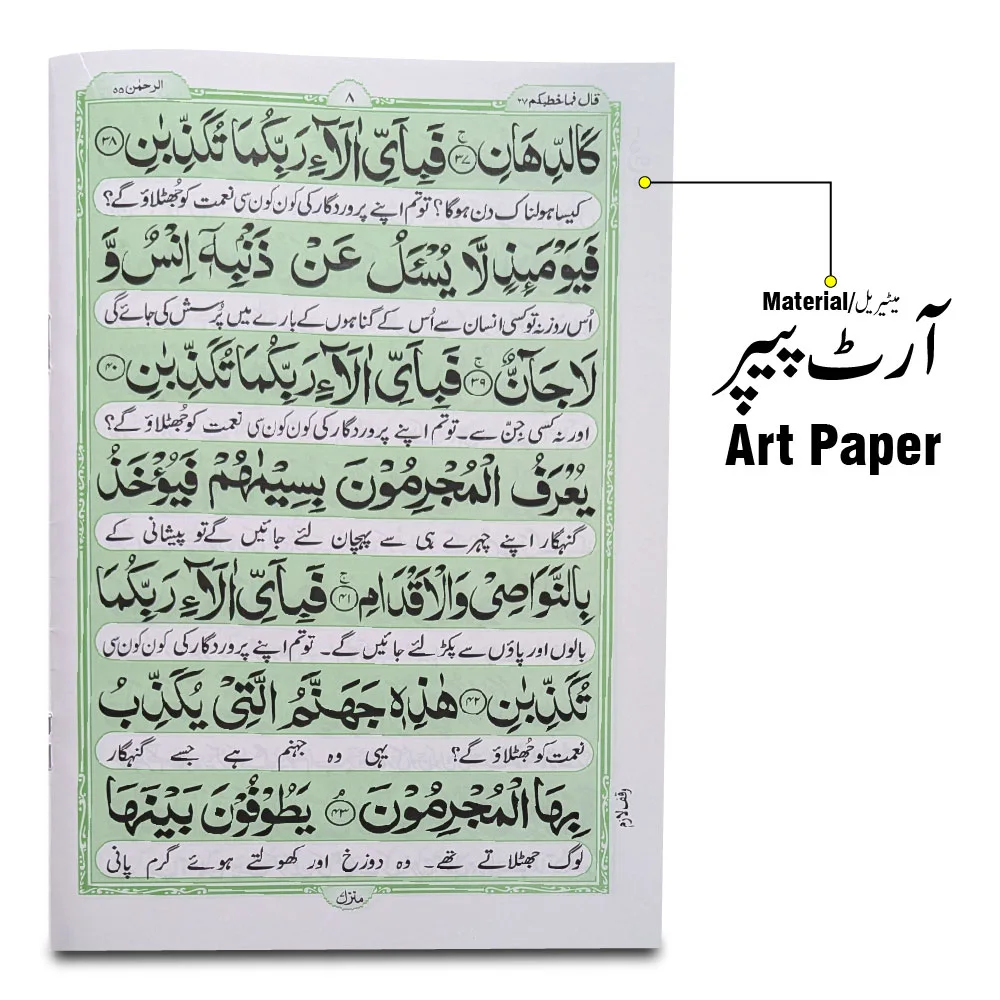 قال فما خطبکم ۲۷
۸
الرحمٰن ۵۵
كَالدِّهَانِ ﴿۳۷﴾ۚ فَبِاَيِّ اٰلَآءِ رَبِّكُمَا تُكَذِّبٰنِ ﴿۳۸﴾
کیسا ہولناک دن ہوگا؟ تو تم اپنے پروردگار کی کون کون سی نعمت کو جُھٹلاؤ گے؟
فَيَوْمَئِذٍ لَّا يُسْـَٔلُ عَنْ ذَنْۢبِهٖٓ اِنْسٌ وَّ
اُس روز نہ تو کسی انسان سے اُس کے گناہوں کے بارے میں پُرسش کی جائے گی
لَا جَآنٌّ ﴿۳۹﴾ۚ فَبِاَيِّ اٰلَآءِ رَبِّكُمَا تُكَذِّبٰنِ ﴿۴۰﴾
اور نہ کسی جِنّ سے۔ تو تم اپنے پروردگار کی کون کون سی نعمت کو جُھٹلاؤ گے؟
يُعْرَفُ الْمُجْرِمُوْنَ بِسِيْمٰهُمْ فَيُؤْخَذُ
گنہگار اپنے چہرے ہی سے پہچان لئے جائیں گے تو پیشانی کے
بِالنَّوَاصِيْ وَالْاَقْدَامِ ﴿۴۱﴾ۚ فَبِاَيِّ اٰلَآءِ رَبِّكُمَا
بالوں اور پاؤں سے پکڑ لئے جائیں گے۔ تو تم اپنے پروردگار کی کون کون سی
تُكَذِّبٰنِ ﴿۴۲﴾ هٰذِهٖ جَهَنَّمُ الَّتِيْ يُكَذِّبُ
نعمت کو جُھٹلاؤ گے؟ یہی وہ جہنم ہے جسے گنہگار
بِهَا الْمُجْرِمُوْنَ ﴿۴۳﴾ۘ يَطُوْفُوْنَ بَيْنَهَا
لوگ جھٹلاتے تھے۔ وہ دوزخ اور کھولتے ہوئے گرم پانی
وقف لازم
منزل
Material/میٹیریل
آرٹ پیپر
Art Paper